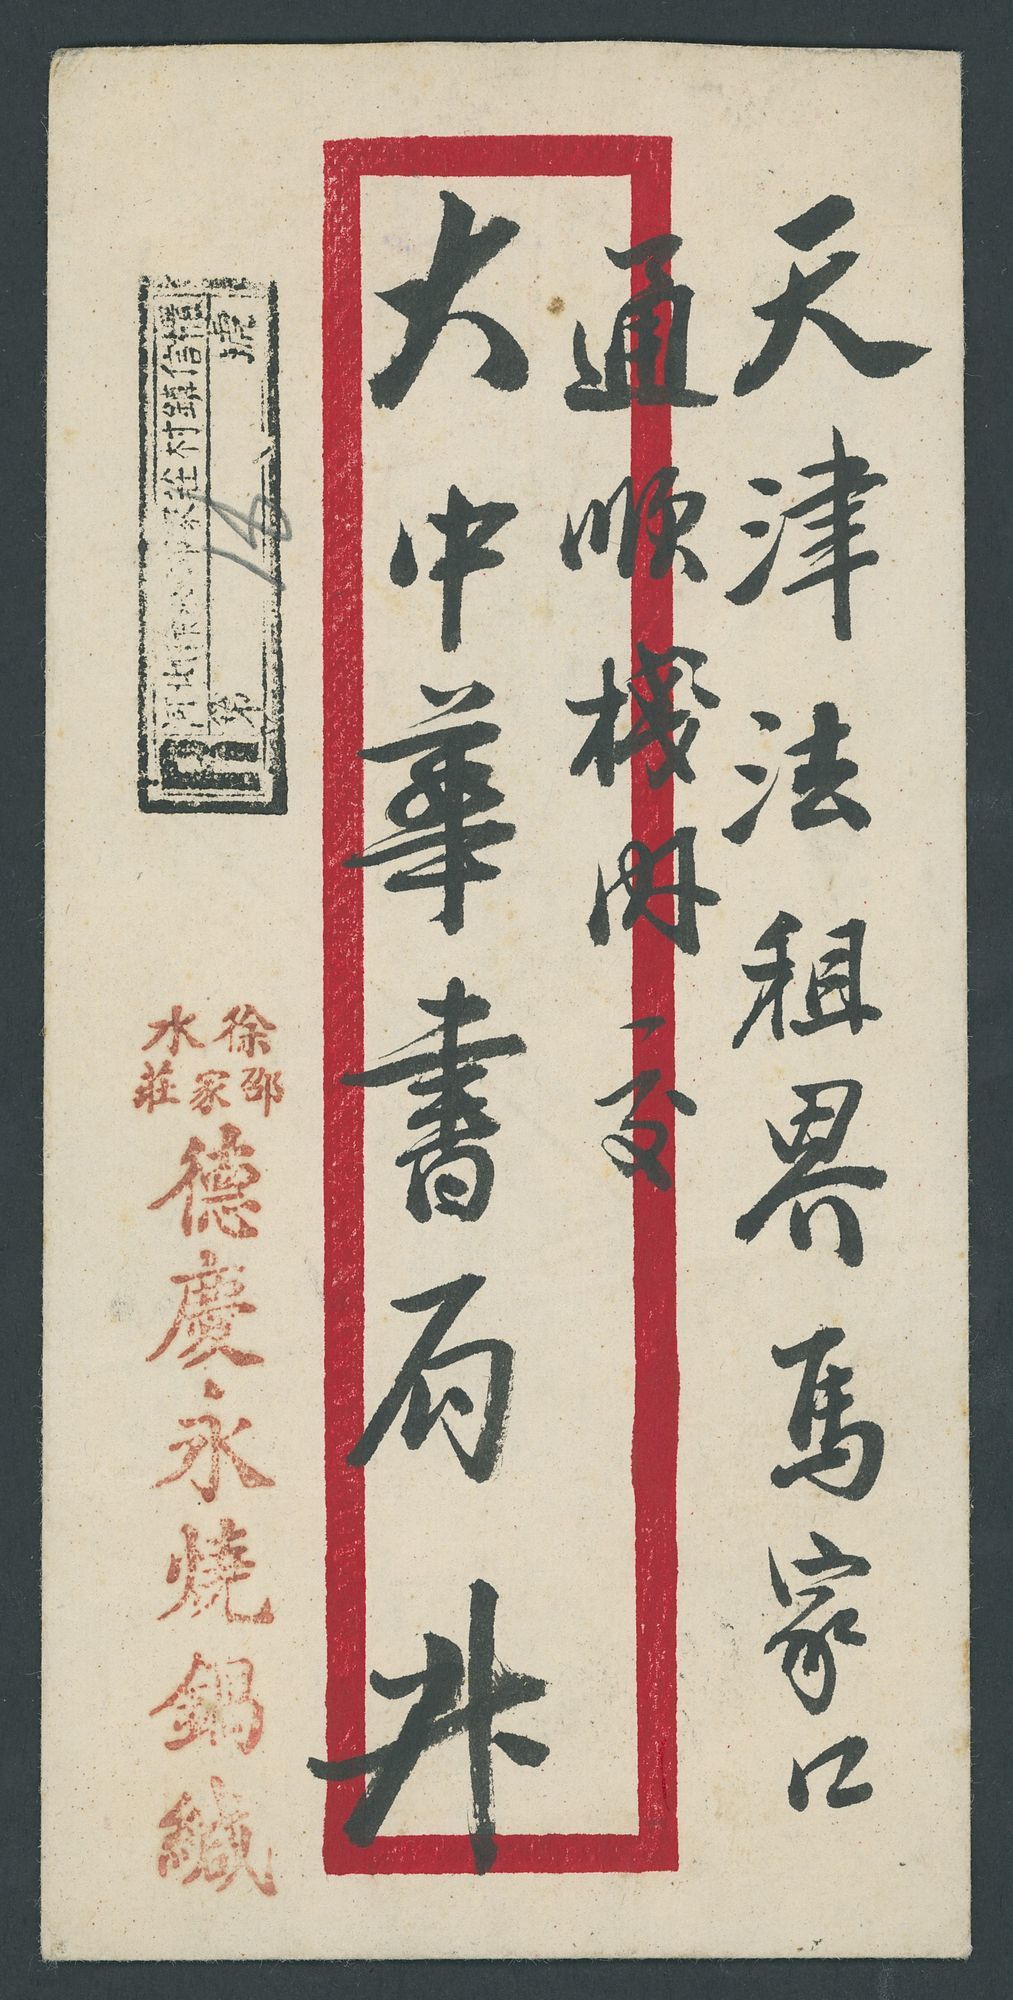 天津法租界馬家口
通順棧內交
大中華書局升
村鎮信櫃
第
號
徐水
邵家莊
德慶永燒鍋緘